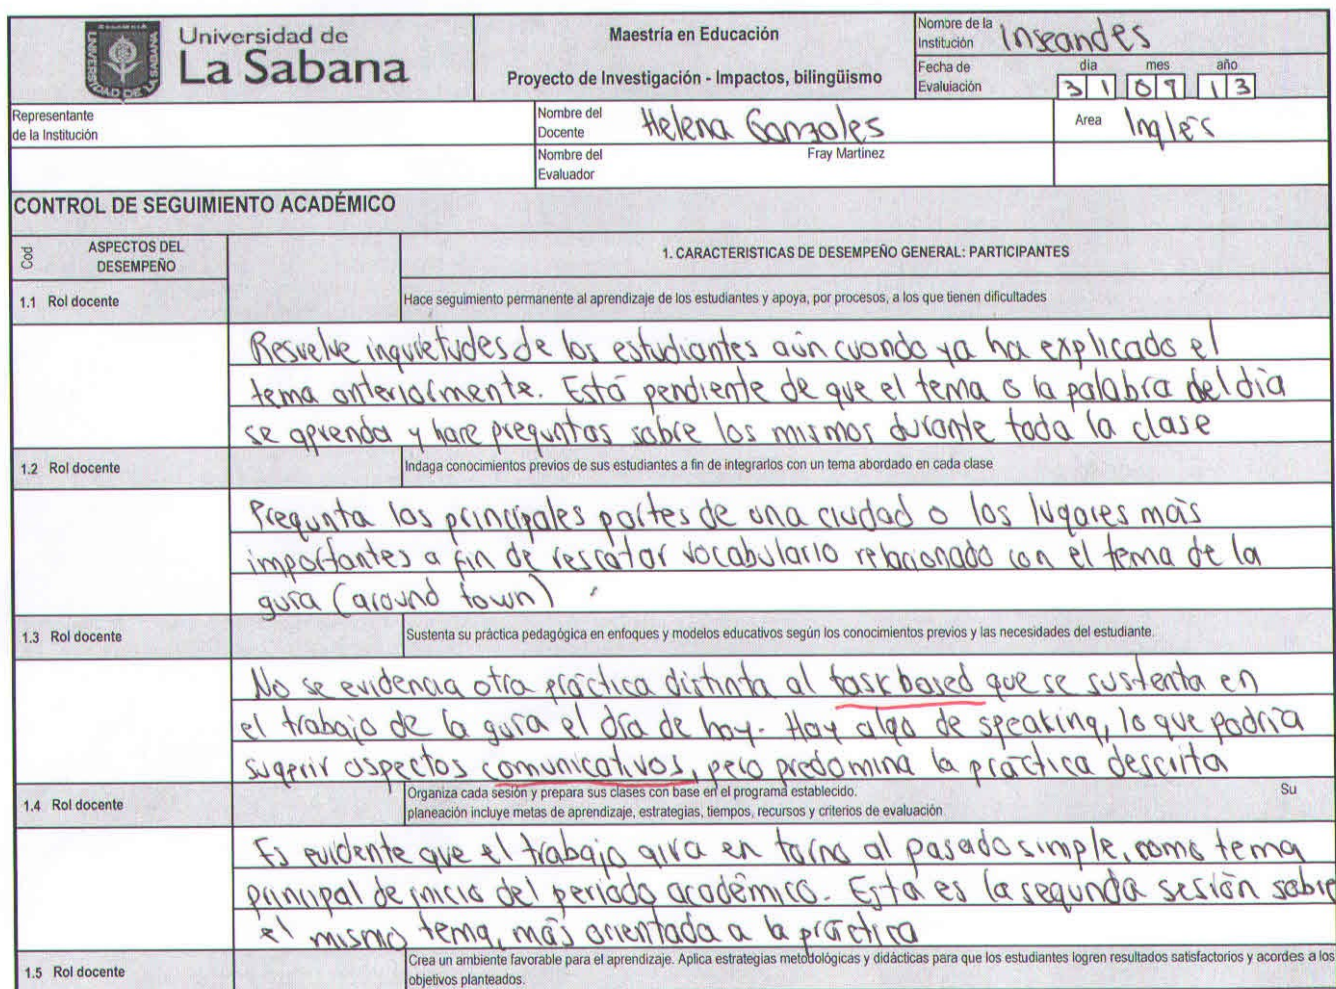 Universidad de
La Sabana
Maestría en Educación
Proyecto de Investigación - Impactos, bilingüismo
Nombre de la
Institución Inseandes
Fecha de
Evaluiación
dia mes año
3 1 0 7 1 3
Representante
de la Institución
Nombre del
Docente Helena Gonzales
Area Inglés
Nombre del
Evaluador
Fray Martinez
CONTROL DE SEGUIMIENTO ACADÉMICO
Cod
ASPECTOS DEL
DESEMPEÑO
1. CARACTERISTICAS DE DESEMPEÑO GENERAL: PARTICIPANTES
1.1 Rol docente
Hace seguimiento permanente al aprendizaje de los estudiantes y apoya, por procesos, a los que tienen dificultades
Resuelve inquietudes de los estudiantes aún cuando ya ha explicado el
tema anteriormente. Está pendiente de que el tema o la palabra del día
se aprenda y hace preguntas sobre los mismos durante toda la clase
1.2 Rol docente
Indaga conocimientos previos de sus estudiantes a fin de integrarlos con un tema abordado en cada clase
Pregunta las principales partes de una ciudad o los lugares más
importantes a fin de rescatar vocabulario relacionado con el tema de la
guía (around town)
1.3 Rol docente
Sustenta su práctica pedagógica en enfoques y modelos educativos según los conocimientos previos y las necesidades del estudiante.
No se evidencia otra práctica distinta al task based que se sustenta en
el trabajo de la guía el día de hoy. Hay algo de speaking, lo que podría
sugerir aspectos comunicativos, pero predomina la práctica descrita
1.4 Rol docente
Organiza cada sesión y prepara sus clases con base en el programa establecido. Su
planeación incluye metas de aprendizaje, estrategias, tiempos, recursos y criterios de evaluación
Es evidente que el trabajo gira en torno al pasado simple, como tema
principal de inicio del periodo académico. Esta es la segunda sesión sobre
el mismo tema, más orientada a la práctica
1.5 Rol docente
Crea un ambiente favorable para el aprendizaje. Aplica estrategias metodológicas y didácticas para que los estudiantes logren resultados satisfactorios y acordes a los
objetivos planteados.